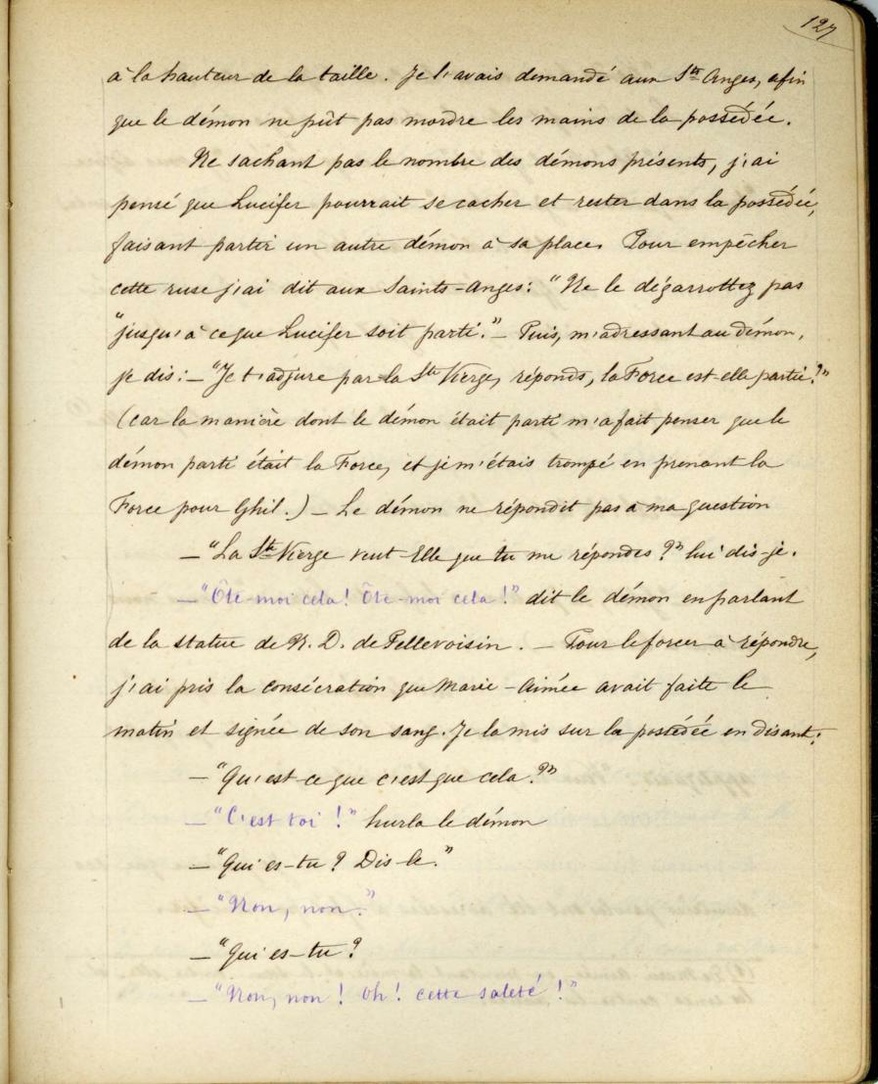 127
à la hauteur de la taille. Je l'avais demandé aux Sts Anges, afin
que le démon ne pût pas mordre les mains de la possédée.
Ne sachant pas le nombre des démons présents, j'ai
pensé que Lucifer pourrait se cacher et rester dans la possédée,
faisant partir un autre démon à sa place. Pour empêcher
cette ruse j'ai dit aux Saints-Anges: "Ne le dégarrottez pas
"jusqu'à ce que Lucifer soit parti." – Puis, m'adressant au démon,
je dis: – "Je t'adjure par la Ste Vierge, réponds, la Force est-elle partie?"
(car la manière dont le démon était parti m'a fait penser que le
démon parti était la Force, et je m'étais trompé en prenant la
Force pour Ghil.) – Le démon ne répondit pas à ma question
– "La Ste Vierge veut-Elle que tu me répondes?" lui dis-je.
– "Ôte-moi cela! Ôte-moi cela!" dit le démon en parlant
de la statue de N. D. de Pellevoisin. – Pour le forcer à répondre,
j'ai pris la consécration que Marie-Aimée avait faite le
matin et signée de son sang. Je la mis sur la possédée en disant:
– "Qu'est-ce que c'est que cela?"
– "C'est toi!" hurla le démon
– "Qui es-tu? Dis-le."
– "Non, non."
– "Qui es-tu?
– "Non, non! Oh! cette saleté!"